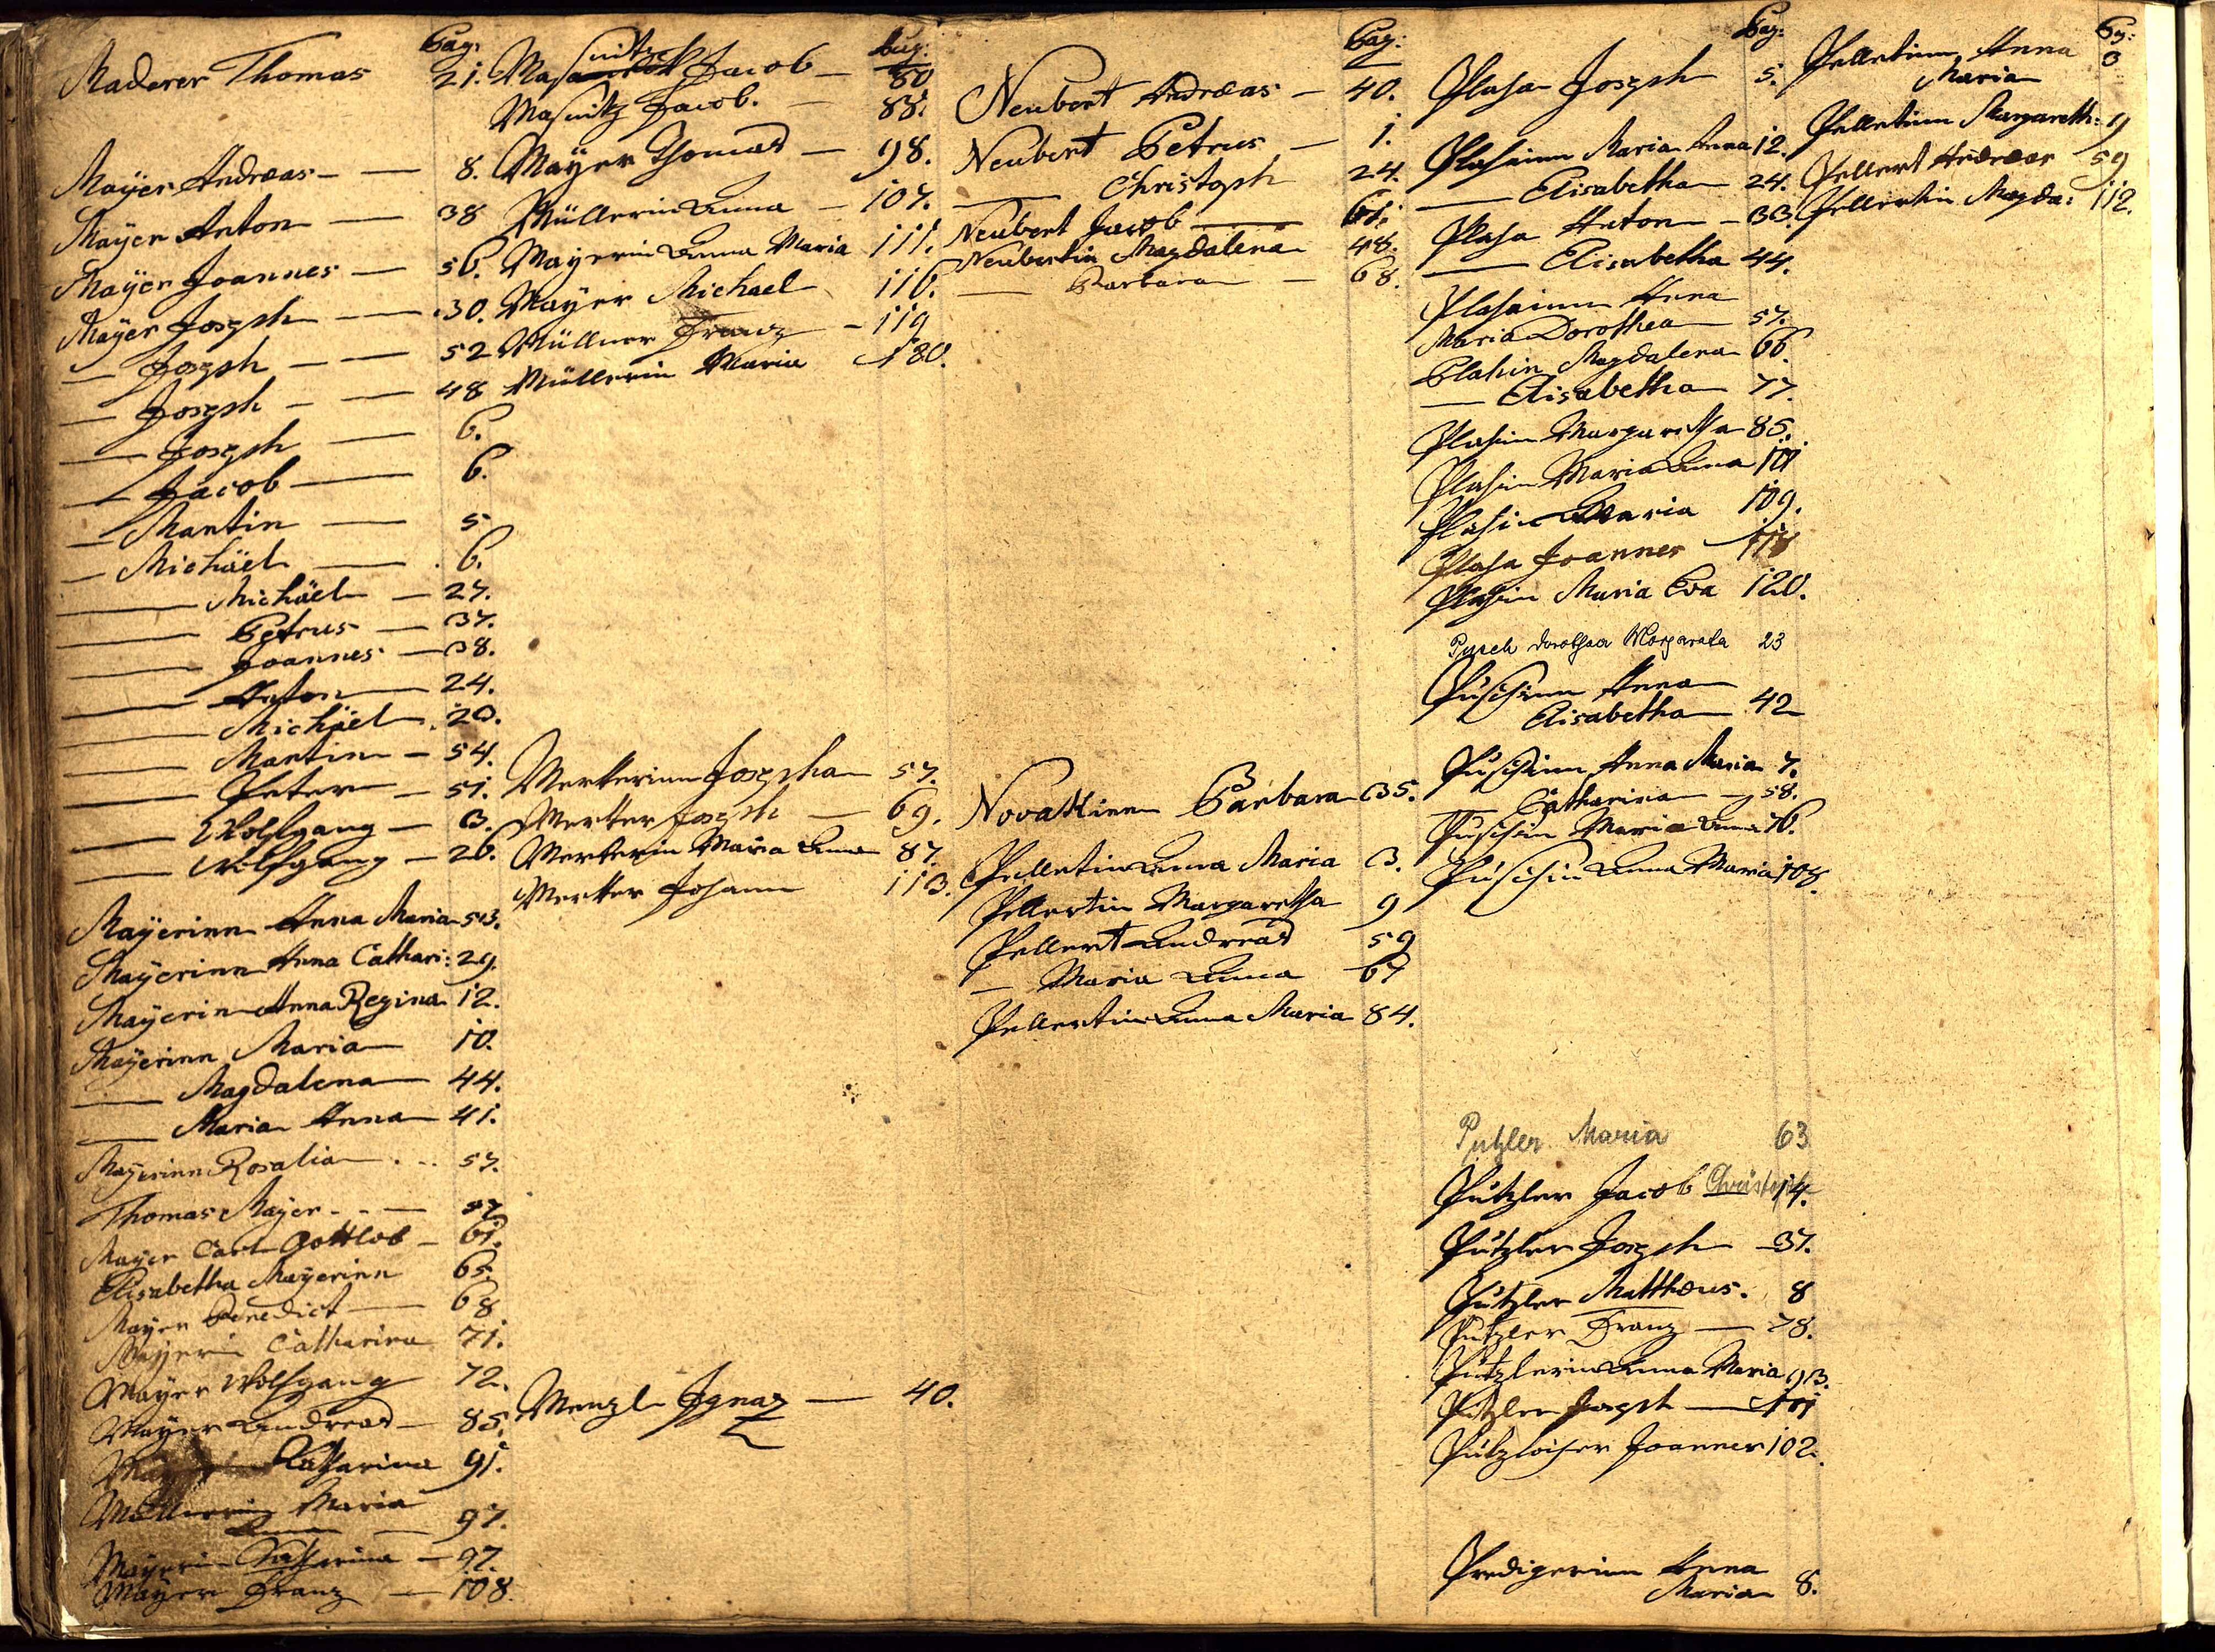 Pag:
Maderer Thomas 21.
Mayer Andreas — 8.
Mayer Anton — 38
Mayer Joannes — 56.
Mayer Joseph — 30.
— Joseph — 52
— Joseph — 48
— Joseph — 6.
— Jacob — 6.
— Martin — 5
— Michäel — 6.
— Michäel — 27.
— Petrus — 37.
— Joannes — 38.
— Anton — 24.
— Michäel 20.
— Martin — 54.
— Peter — 51.
— Wolfgang — 3.
— Wolfgang — 26.
Mayerinn Anna Maria 53.
Mayerinn Anna Cathari: 29.
Mayerin Anna Regina 12.
Mayerinn Maria 10.
— Magdalena 44.
— Maria Anna 41.
Mayerinn Rosalia 57.
Thomas Mayer
Mayer Carl Gottlob — 61.
Elisabetha Mayerinn 65.
Mayer Benedict — 68
Mayerin Catharina 71.
Mayer Wolfgang 72.
Mayer Andreas — 85.
Catharina 91.
Müllerin Maria
Anna — 97.
Mayerin Catharina — 97.
Mayer Franz — 108.
Pag:
Masnitz Jacob — 80
Masnitz Jacob. — 88.
Mayer Thomas — 98.
Müllerin Anna — 107.
Mayerin Anna Maria 111.
Mayer Michael 116.
Müllner Franz — 119
Müllerin Maria 180.
Merkerinn Josepha 57.
Merker Joseph — 69.
Merkerin Maria Anna 87.
Merker Johann 113.
Menzl Ignaz — 40.
Pag:
Neubert Andreas — 40.
Neubert Petrus — 1.
— Christoph 24.
Neubert Jacob — 61.
Neubertin Magdalena 48.
— Barbara — 68.
Novakinn Barbara 35.
Pelletin Anna Maria 3.
Pellertin Margaretha 9
Pellert Andreas 59
— Maria Anna 67
Pellertin Anna Maria 84.
Pag:
Plaha Joseph 5.
Plahainn Maria Anna 12.
— Elisabetha 24.
Plaha Anton — 33.
— Elisabetha 44.
Plahainn Anna
Maria Dorothea 57.
Plahin Magdalena 66.
— Elisabetha 77.
Plahin Margaretha 85.
Plahin Maria Anna 101
Plahin Maria 109.
Plaha Joannes 118
Plahin Maria Eva 120.
Pusch Dorothea Margareta 23
Puschinn Anna
Elisabetha 42
Puschinn Anna Maria 7.
— Catharina — 58.
Puschin Maria Anna 76.
Puschin Anna Maria 108.
Putzler Maria 63
Putzler Jacob Christoph 14.
Putzler Joseph — 37.
Putzler Matthæus. 8
Putzler Franz — 78.
Putzlerin Anna Maria 93.
Putzler Joseph — 101
Joannes 102.
Predigerinn Anna
Maria 8.
Pg:
Pelletinn Anna 3
Maria
Pelletinn Margareth: 9
Pellert Andreas 59
Pellertin Magda: 112.